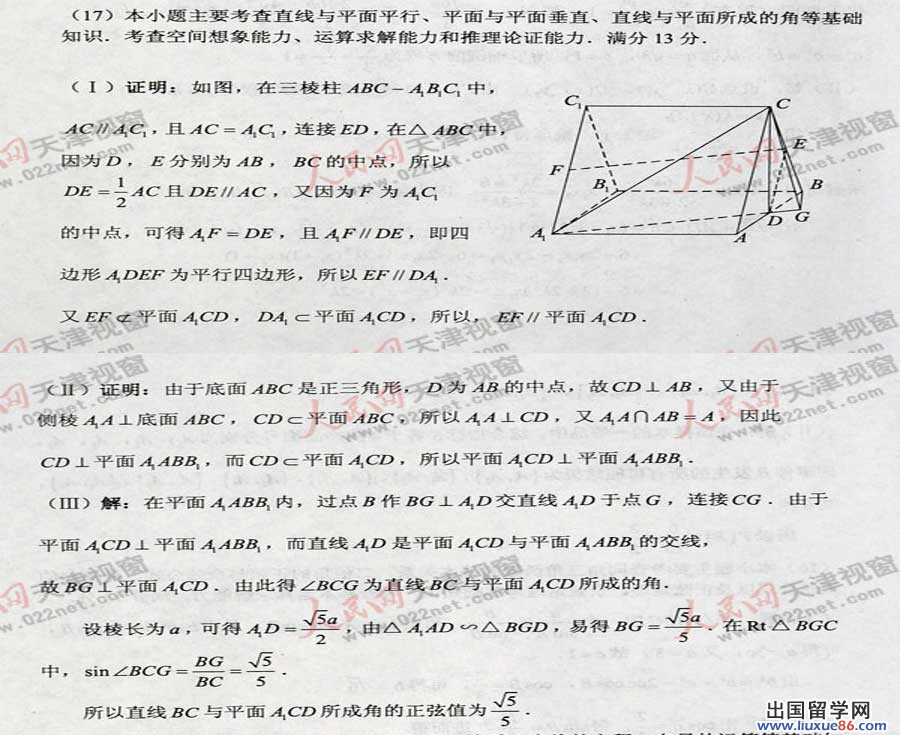 (17) 本小题主要考查直线与平面平行、平面与平面垂直、直线与平面所成的角等基础
知识. 考查空间想象能力、运算求解能力和推理论证能力. 满分 13 分.
(Ⅰ) 证明: 如图, 在三棱柱 ABC − A₁B₁C₁ 中,
AC // A₁C₁, 且 AC = A₁C₁, 连接 ED, 在△ ABC 中,
因为 D, E 分别为 AB, BC 的中点, 所以
DE = 1/2 AC 且 DE // AC, 又因为 F 为 A₁C₁
的中点, 可得 A₁F = DE, 且 A₁F // DE, 即四
边形 A₁DEF 为平行四边形, 所以 EF // DA₁.
又 EF ⊄ 平面 A₁CD, DA₁ ⊂ 平面 A₁CD, 所以, EF // 平面 A₁CD.
C₁
C
E
F
B₁
B
D
G
A₁
A
(Ⅱ) 证明: 由于底面 ABC 是正三角形, D 为 AB 的中点, 故 CD ⊥ AB, 又由于
侧棱 A₁A ⊥ 底面 ABC, CD ⊂ 平面 ABC, 所以 A₁A ⊥ CD, 又 A₁A ∩ AB = A, 因此
CD ⊥ 平面 A₁ABB₁, 而 CD ⊂ 平面 A₁CD, 所以平面 A₁CD ⊥ 平面 A₁ABB₁.
(Ⅲ) 解: 在平面 A₁ABB₁ 内, 过点 B 作 BG ⊥ A₁D 交直线 A₁D 于点 G, 连接 CG. 由于
平面 A₁CD ⊥ 平面 A₁ABB₁, 而直线 A₁D 是平面 A₁CD 与平面 A₁ABB₁ 的交线,
故 BG ⊥ 平面 A₁CD. 由此得 ∠BCG 为直线 BC 与平面 A₁CD 所成的角.
设棱长为 a, 可得 A₁D = √5a/2, 由△ A₁AD ∽ △ BGD, 易得 BG = √5a/5. 在 Rt △ BGC
中, sin ∠BCG = BG/BC = √5/5.
所以直线 BC 与平面 A₁CD 所成角的正弦值为 √5/5.
人民网 天津视窗
www.022net.com
出国留学网
www.liuxue86.com